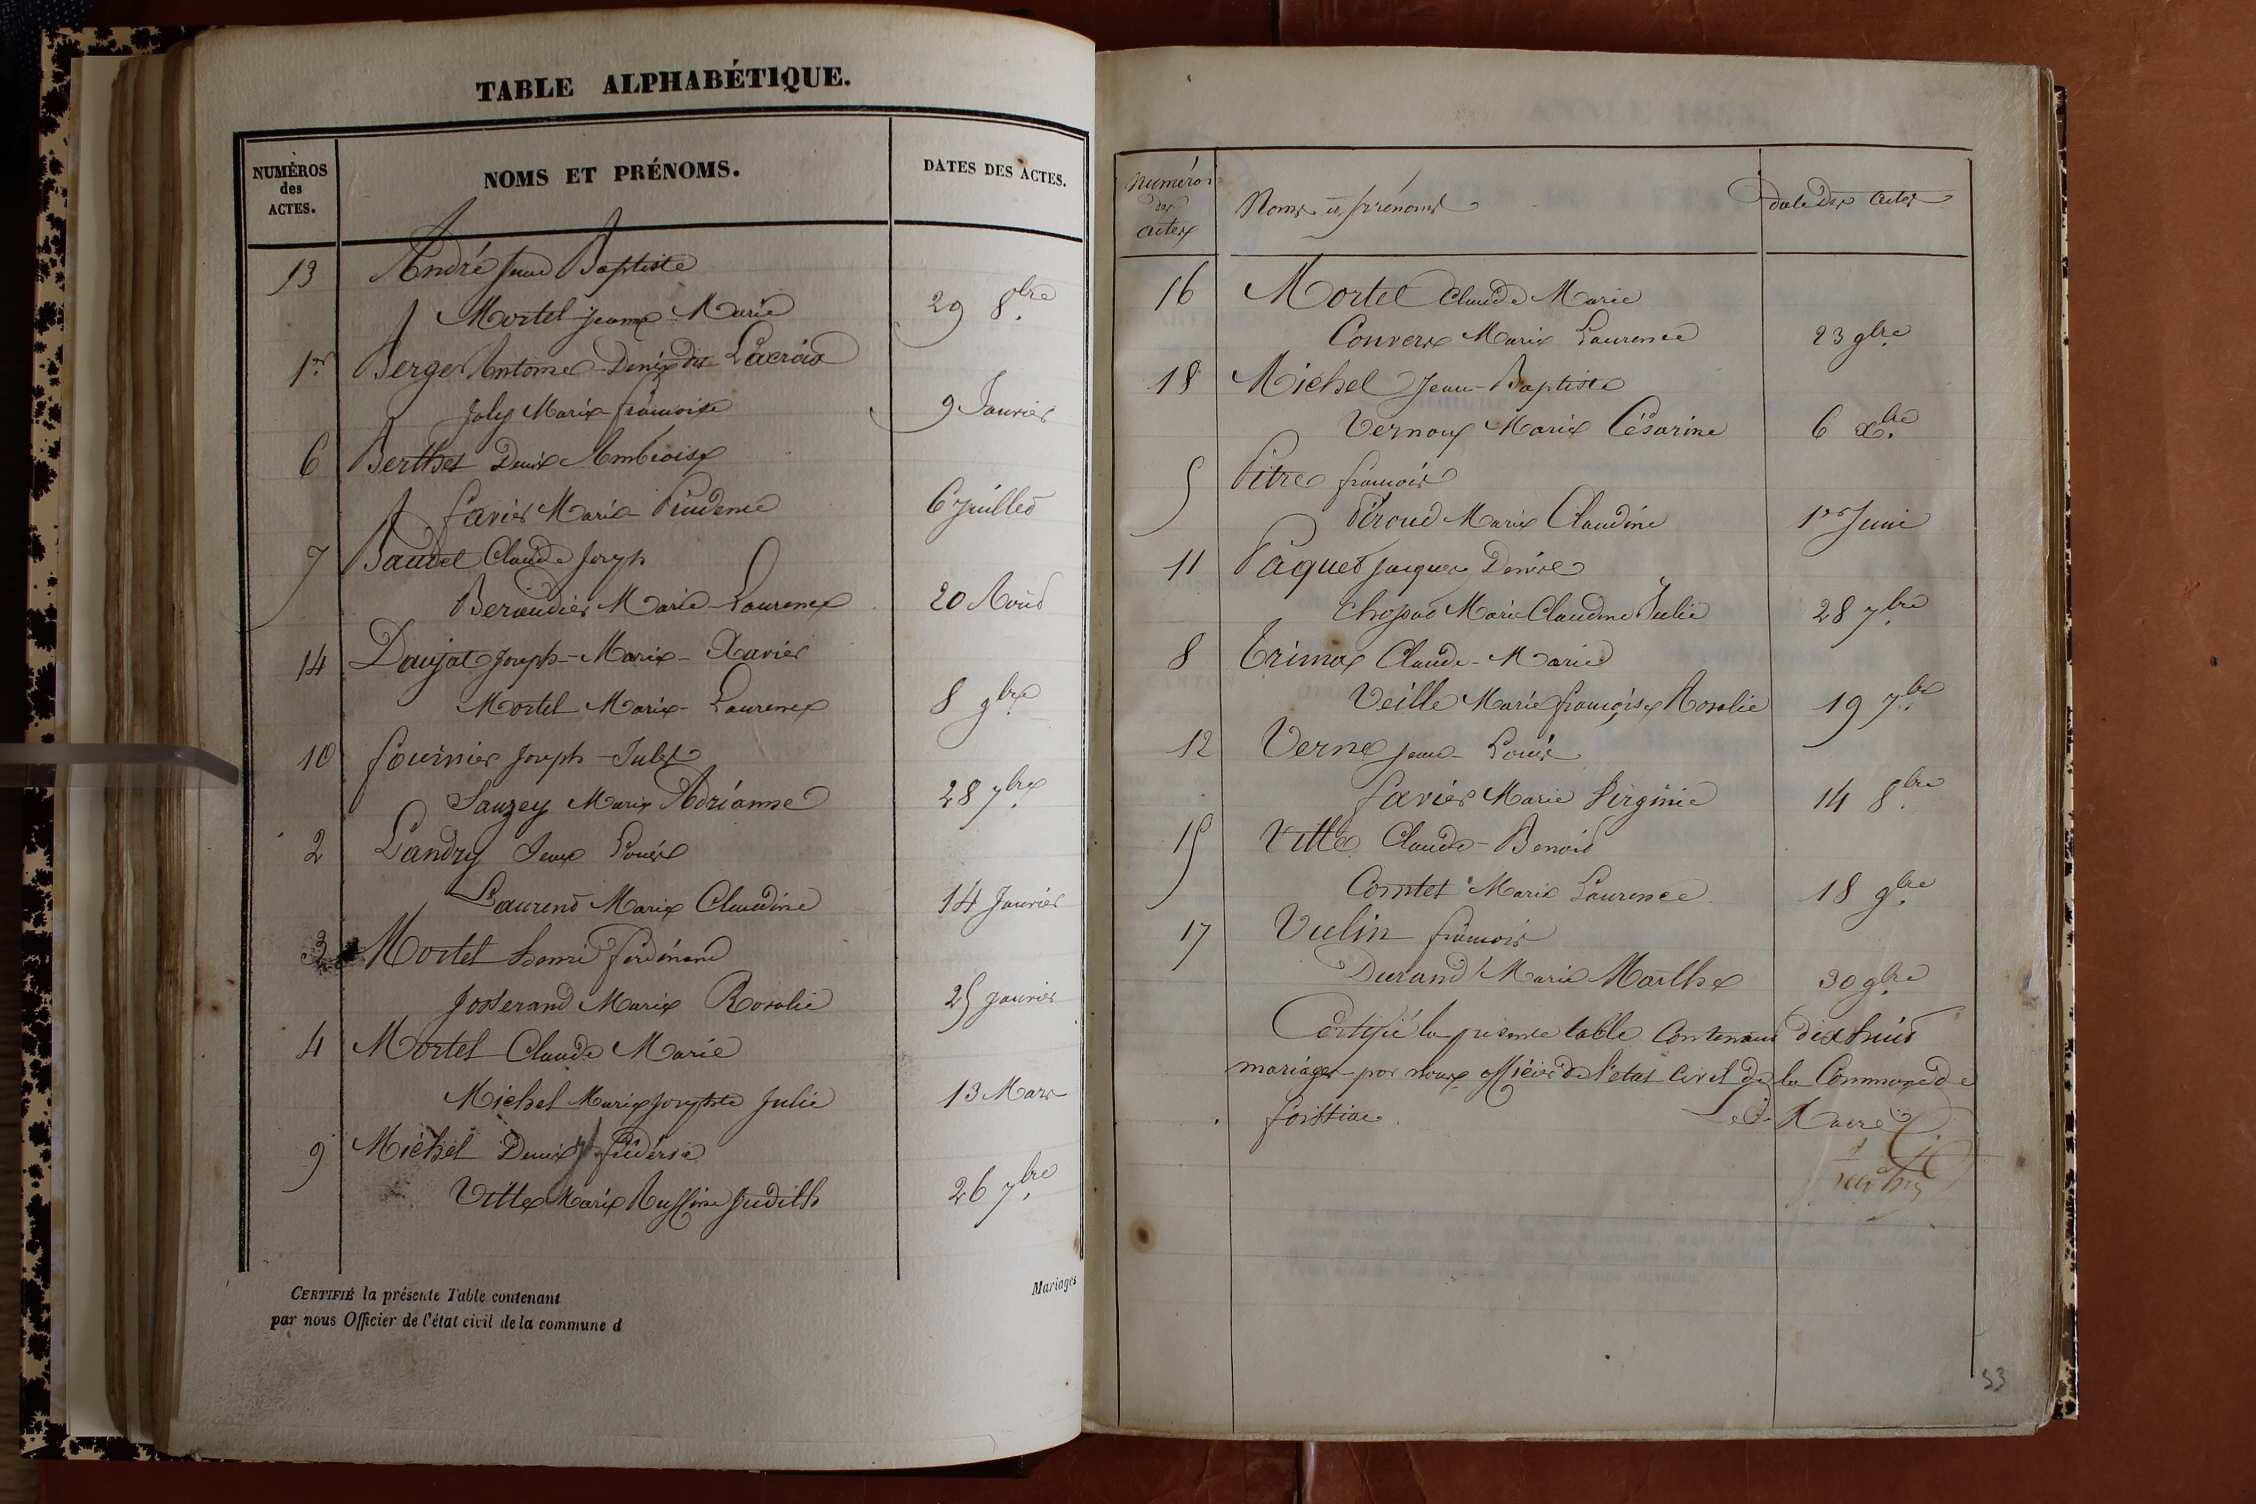 TABLE ALPHABÉTIQUE.
NUMÉROS des ACTES. NOMS ET PRÉNOMS. DATES DES ACTES.
13 André Jean Baptiste
Mortel Jeanne Marie 29 8bre
1er Berger Antoine Denis dit Lacroix
Joly Marie françoise 9 Janvier
6 Berthet Denis Ambroise
favier Marie Prudence 6 Juillet
7 Baudet Claude Joseph
Beraudier Marie Laurence 20 Août
14 Daujat Joseph-Marie-Xavier
Mortel Marie-Laurence 8 9bre
10 fournier Joseph-Jules
Sauzey Marie Adrianne 28 7bre
2 Landry Jean Louis
Laurent Marie Claudine 14 Janvier
3 Mortel henri ferdinand
Josserand Marie Rosalie 25 Janvier
4 Mortel Claude Marie
Michel Marie Josephte Julie 13 Mars
9 Michel Denis fréderic
Vitte Marie Ruffine Judith 26 7bre
CERTIFIÉ la présente Table contenant Mariages
par nous Officier de l'état civil de la commune d
Numéros des actes Noms et prénoms date des actes
16 Mortel Claude Marie
Convers Marie Laurence 23 9bre
18 Michel Jean-Baptiste
Vernoux Marie Césarine 6 Xbre
5 Pitre francois
Péroud Marie Claudine 1er Juin
11 Paquet Jacques Denis
Chapot Marie Claudine Julie 28 7bre
8 Trimox Claude-Marie
Veille Marie françoise Rosalie 19 7bre
12 Verne Jean-Louis
favier Marie Virginie 14 8bre
15 Vitte Claude-Benoit
Comtet Marie Laurence 18 9bre
17 Vulin francois
Durand Marie Marthe 30 9bre
Certifié la presente table Contenant dix huit
mariages par nous officier de l'etat Civil de la Commune de
foissiac. Le Maire
53